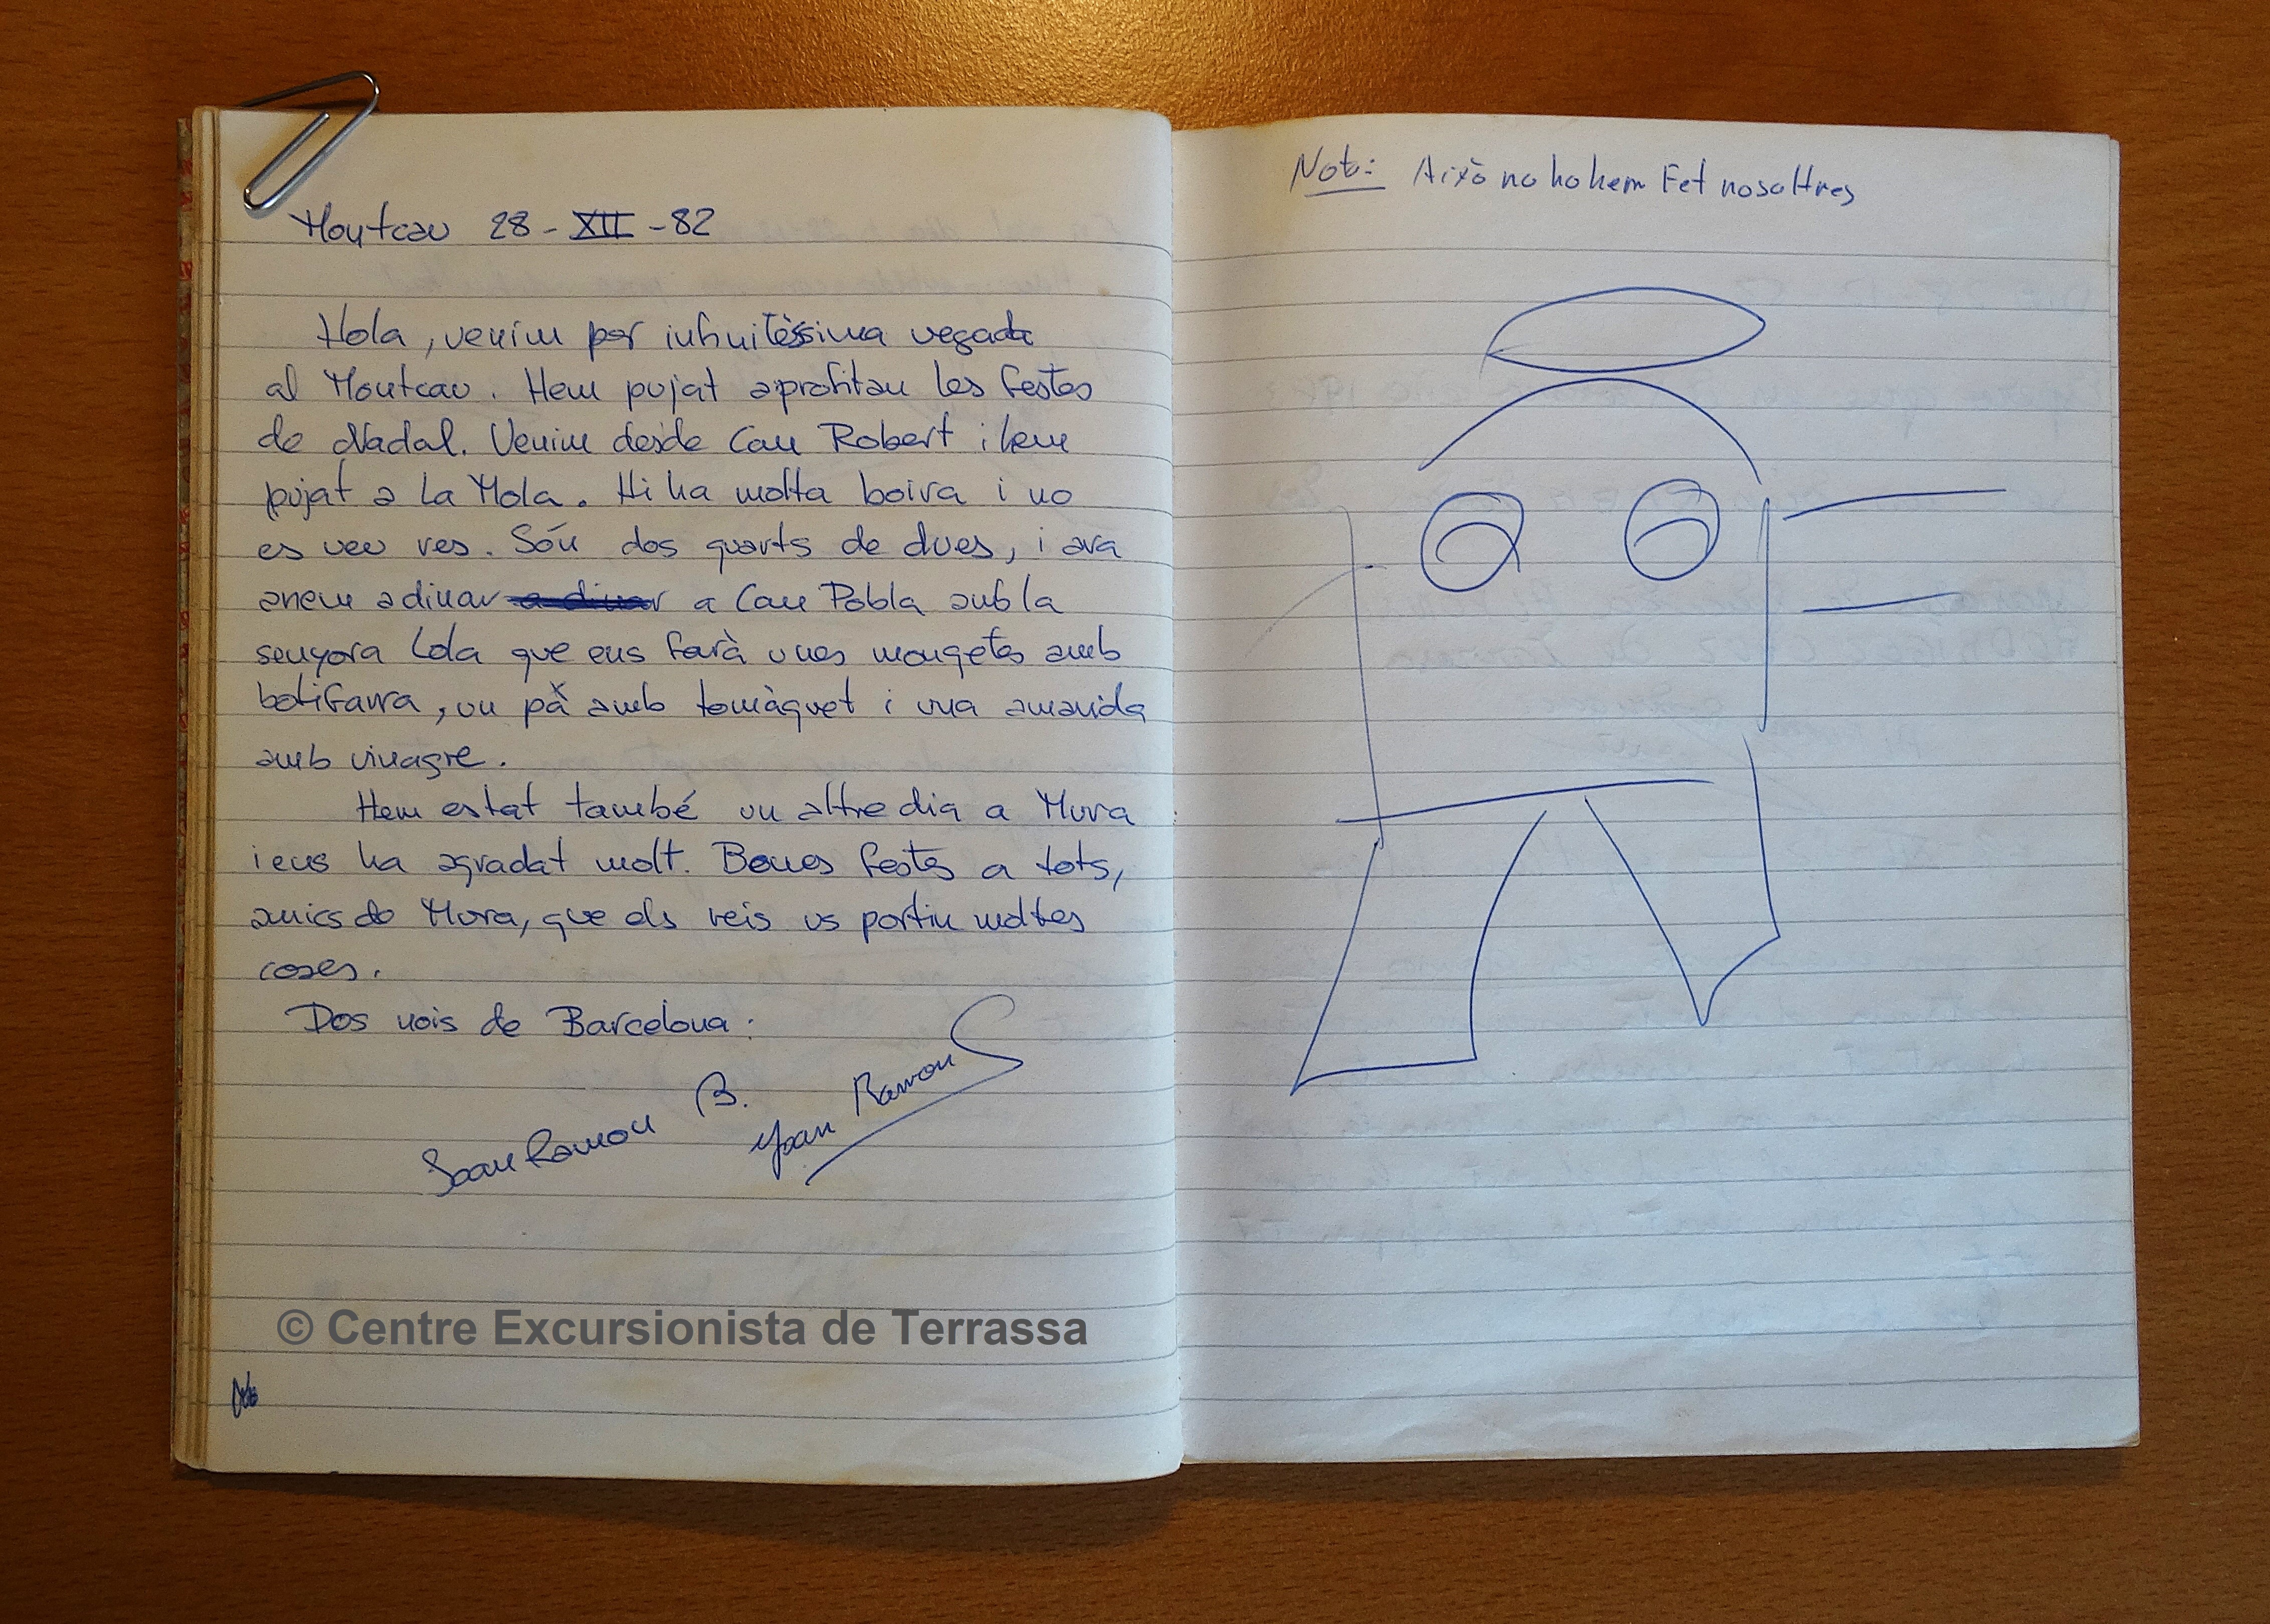 Montcau 28-XII-82
Hola, venim per infinitèssima vegada
al Montcau. Hem pujat aprofitan les festes
de Nadal. Venim desde Can Robert i hem
pujat a La Mola. Hi ha molta boira i no
es veu res. Són dos quarts de dues, i ara
anem a dinar a dinar a Can Pobla amb la
senyora Lola que ens farà unes mongetes amb
botifarra, un pà amb tomàquet i una amanida
amb vinagre.
Hem estat també un altre dia a Mura
i ens ha agradat molt. Bones festes a tots,
amics de Mura, que els reis us portin moltes
coses.
Dos nois de Barcelona:
Joan Ramon B.
Joan Ramon S
© Centre Excursionista de Terrassa
Nota: Això no ho hem Fet nosaltres